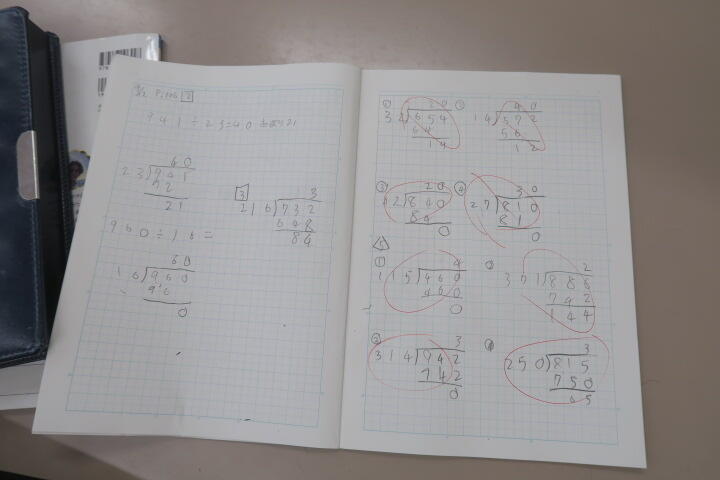 941÷23=40 あまり21
40
23)941
92
21
960÷16=
60
16)960
96
0
3
3
216)732
648
84
20
32)654
64
14
40
14)572
56
12
③ 20
42)840
84
0
④ 30
27)810
81
0
① 4
115)460
460
0
2
371)886
742
144
③ 3
314)942
942
0
④ 3
250)815
750
65